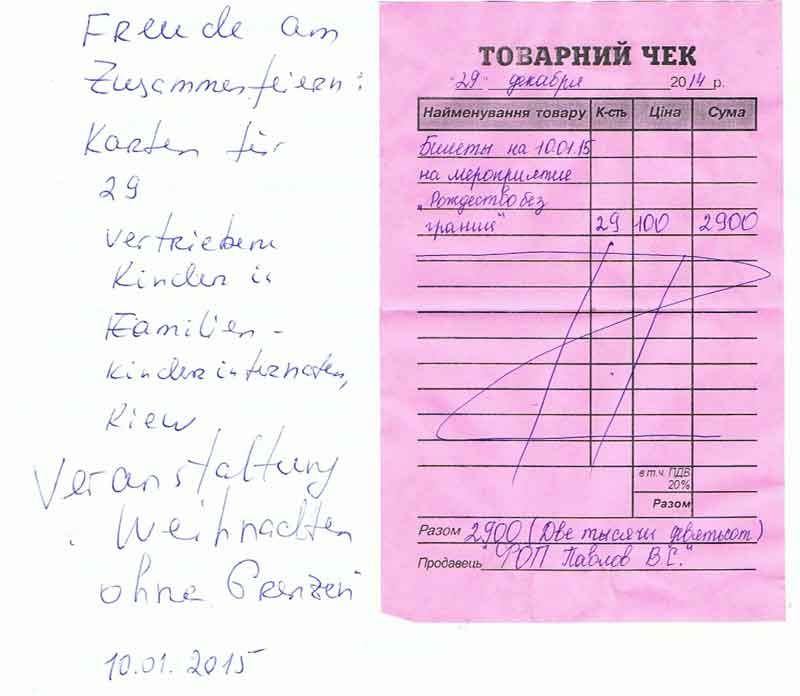 Freude am
Zusammenfeiern:
Karten für
29
vertriebene
Kinder in
Familien-
kinderinternaten,
Kiew
Veranstaltung
"Weihnachten
ohne Grenzen"
10.01.2015
ТОВАРНИЙ ЧЕК
"29" декабря 2014 р.
Найменування товару К-сть Ціна Сума
Билеты на 10.01.15
на мероприятие
"Рождество без
границ" 29 100 2900
в т.ч. ПДВ
20%
Разом
Разом 2900 (Две тысячи девятьсот)
Продавець "ФОП Павлов В.С."